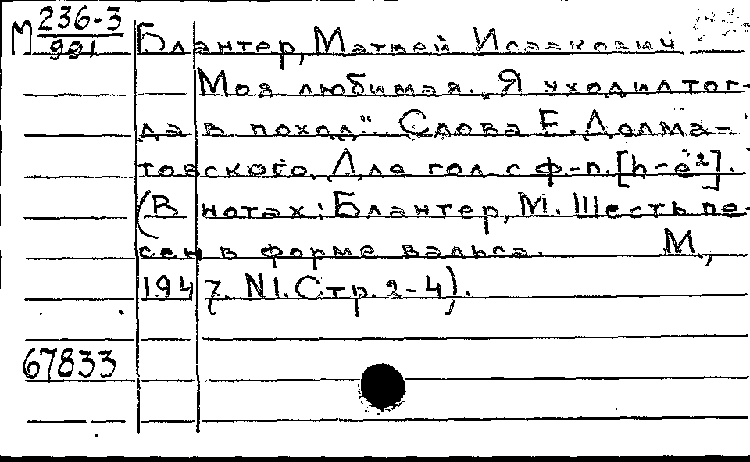 М 236-3
991
Блантер, Матвей Исаакович
Моя любимая. „Я уходил тог-
да в поход". Слова Е. Долма-
товского. Для гол. с ф-п. [h-e²].
(В нотах: Блантер, М. Шесть пе-
сен в форме вальса. М.,
1947. N1. Стр. 2-4).
67833